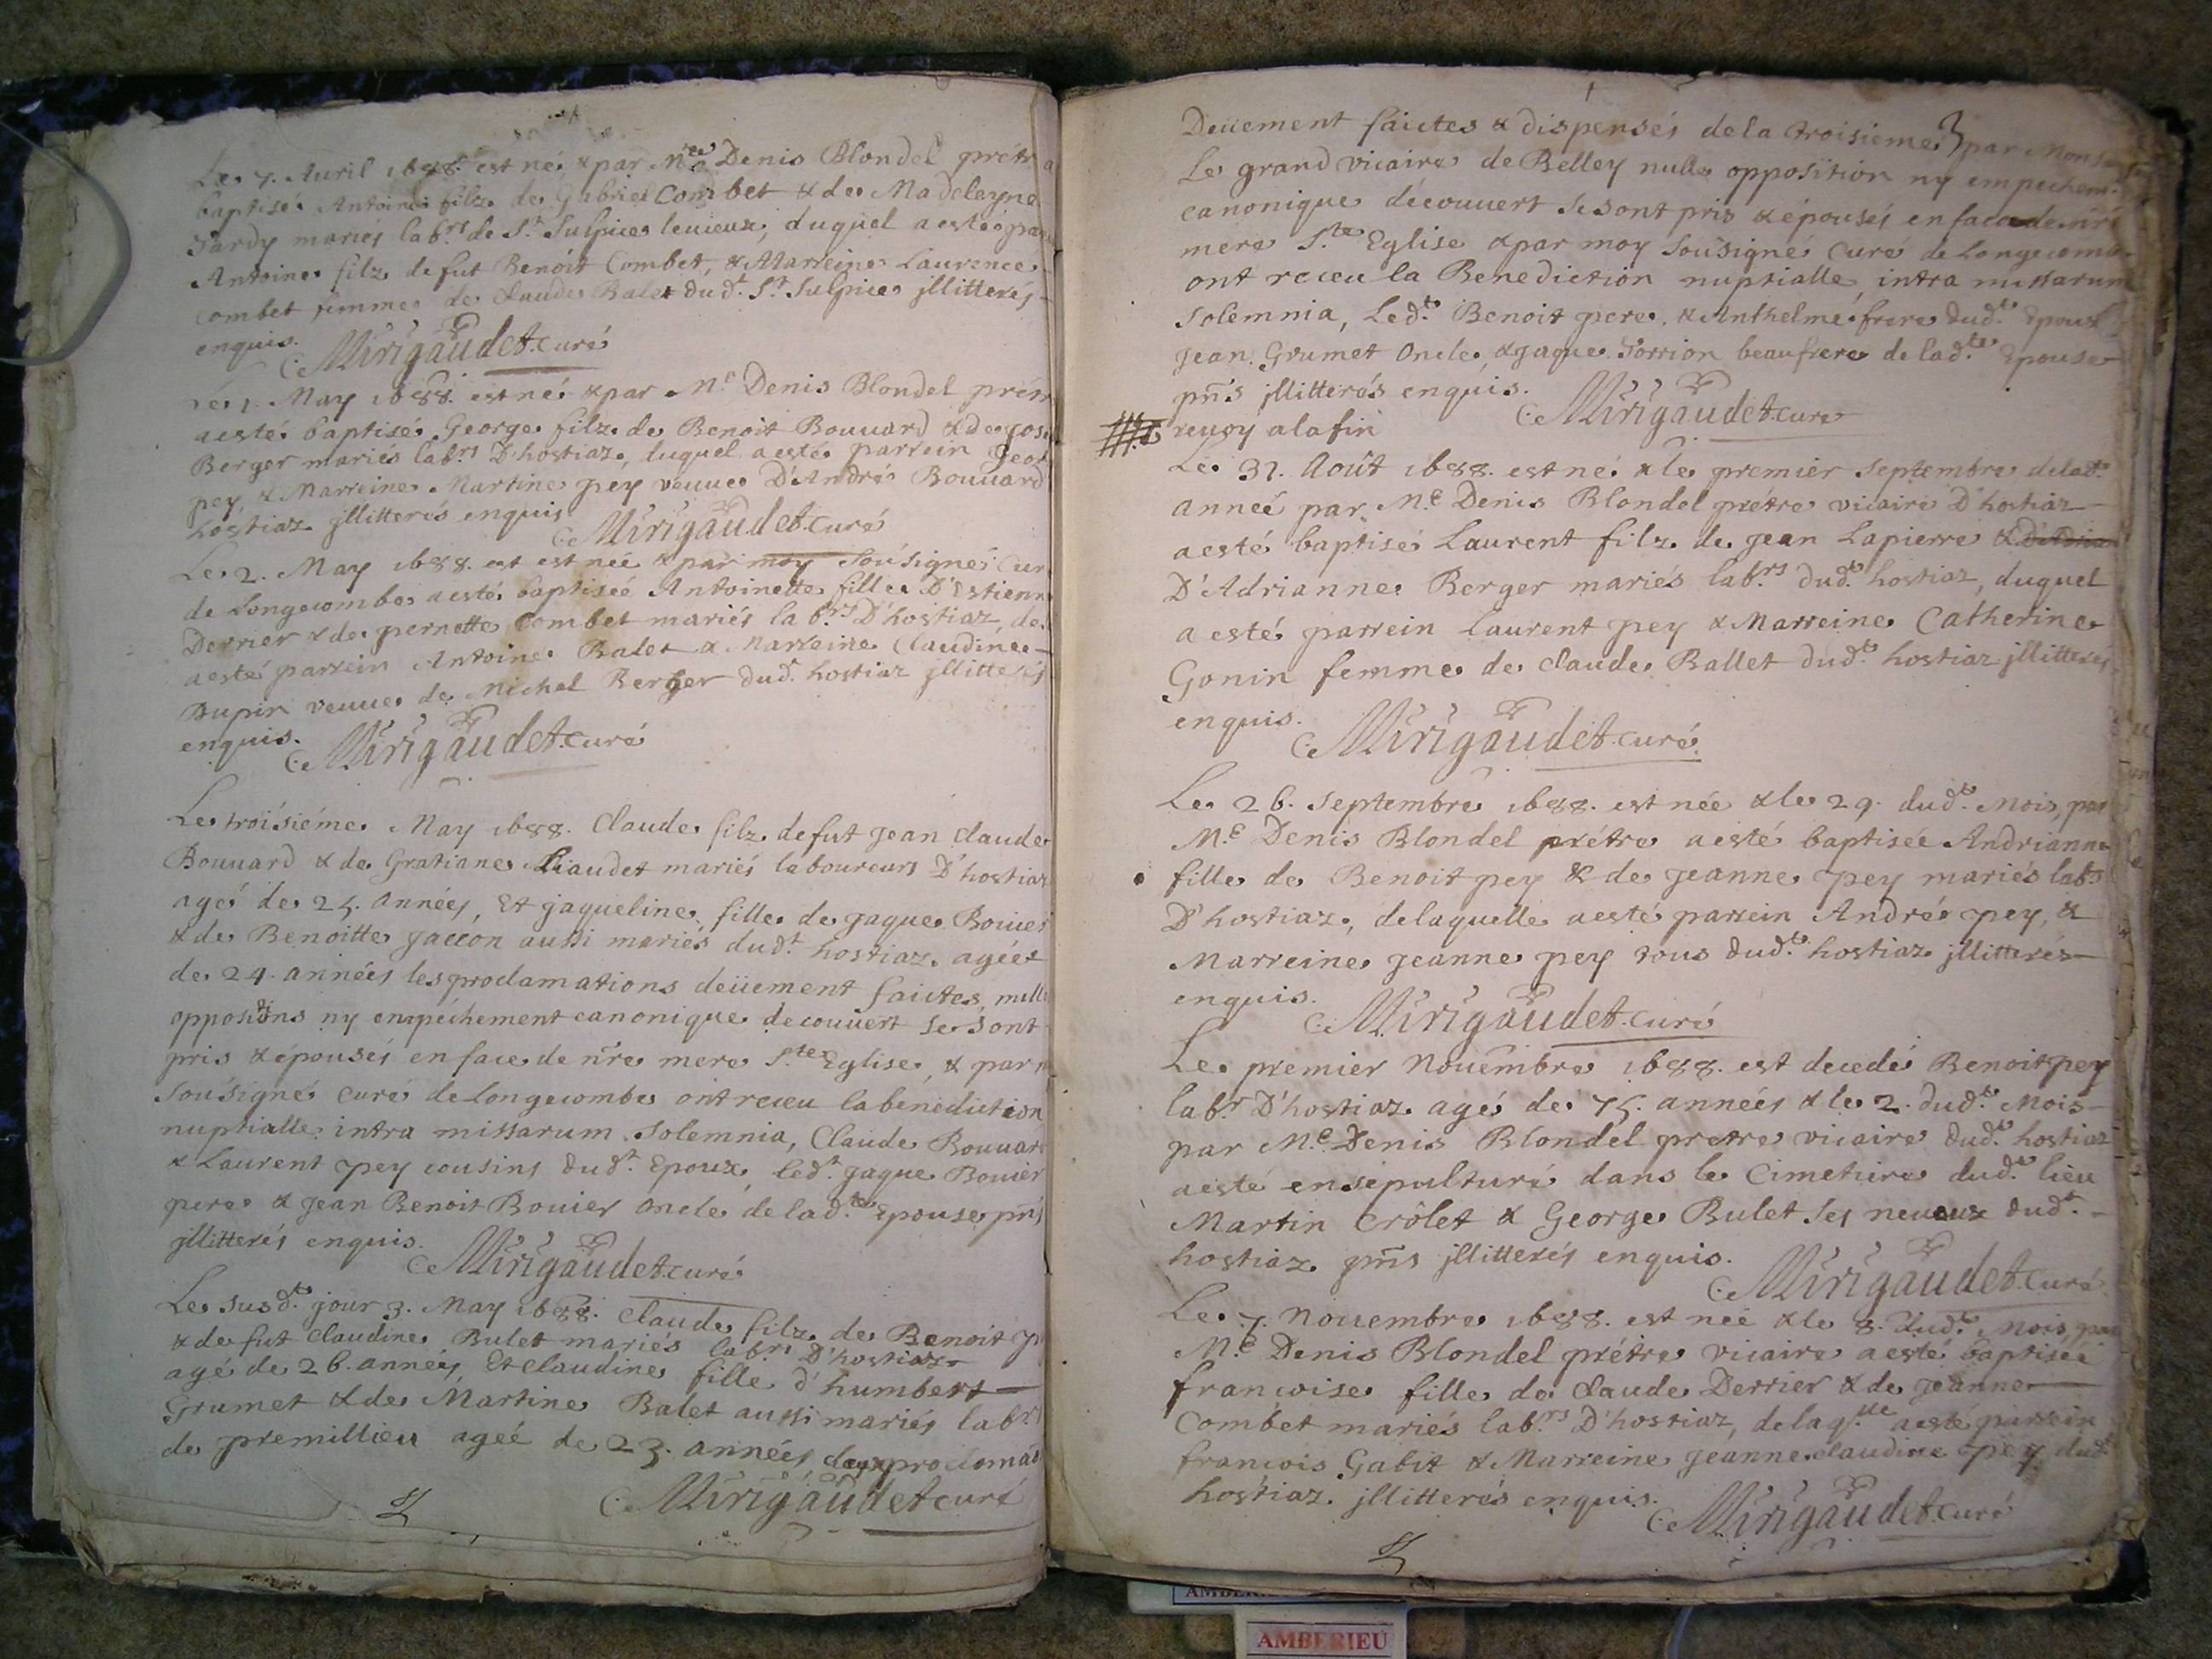 Le 7. Auril 1688. est né & par Mre Denis Blondel prétr
baptisé Antoine filz de Gabriel Combet & de Madeleyne
Tardy mariés labrs de St Sulpice levieux, duquel a esté par
Antoine filz de fut Benoit Combet, & Marreine Laurence
Combet femme de Claude Balet dudt. St Sulpice jllitterés
enquis. Mirigaudet curé
Le 1. May 1688. est né & par Me Denis Blondel prétr
a esté baptisé George filz de Benoit Bouuard & de jos
Berger mariés labrs D'hostiaz, duquel a esté parrein Geor
pey, & Marreine Martine pey veuue D'André Bouuard
hostiaz jllitterés enquis Mirigaudet curé
Le 2. May 1688. est est née & par moy soúsigné Cur
de Longecombe a esté baptiseé Antoinette fille D'Estienn
Derrier & de pernette Combet mariés labrs D'hostiaz, de
a esté parrein Antoine Balet & Marreine Claudine
Dupin veuue de Michel Berger dudt. hostiaz jllitterés
enquis. Mirigaudet curé
Le troisiéme May 1688. Claude filz de fut Jean Claude
Bouuard & de Gratiane Liaudet mariés laboureurs D'hostiaz
agé de 25. années, Et jaqueline fille de jaque Bouier
& de Benoitte jaccon aussi mariés dudt. hostiaz agée
de 24. années les proclamations deüement faictes, nulle
oppositions ny empéchement canonique decouuert se sont
pris & épousés en face de nre mere Ste Eglise, & par m
soúsigné curé de Longecombe ont receu la benediction
nuptialle intra missarum solemnia, Claude Bouuard
& Laurent pey cousins dudt. Epoux, ledt. jaque Bouier
pere & Jean Benoit Bouier oncle de ladte. Epouse pnts
jllitterés enquis. Mirigaudet curé
Le susdt. jour 3. May 1688. Claude filz de Benoit p
& de fut Claudine Bulet mariés labrs D'hostiaz
agé de 26. années, Et Claudine fille d'humbert
Grumet & de Martine Balet aussi mariés labrs
de premillieu ageé de 23. années deux proclomao
Mirigaudet curé
Deüement faictes & dispensés de la troisieme par Mons
Le grand vicaire de Belley nulle opposition ny empechem
canonique découuert se sont pris & épousés en face de nre
mere Ste Eglise & par moy soúsigné curé de Longecomb
ont receu la Benediction nuptialle intra missarum
solemnia, Ledt. Benoit pere & Anthelme frere dudt. Epoux
Jean Grumet Oncle, & jaque Torrion beaufrere de ladte. Epouse
pnts jllitterés enquis. Mirigaudet curé
renuoy a la fin
Le 31. Aoút 1688. est né & le premier septembre de ladt.
anneé par Me Denis Blondel prétre vicaire D'hostiaz
a esté baptisé Laurent filz de Jean Lapierre &
D'Adrianne Berger mariés labrs dudt. hostiaz, duquel
a esté parrein Laurent pey & Marreine Catherine
Gonin femme de Claude Ballet dudt. hostiaz jllitterés
enquis. Mirigaudet curé
Le 26. septembre 1688. est née & le 29. dudt. Mois, par
Me Denis Blondel prétre a esté baptisée Andrianne
fille de Benoit pey & de Jeanne pey mariés labrs
D'hostiaz, de laquelle a esté parrein André pey, &
Marreine Jeanne pey tous dudt. hostiaz jllitterés
enquis. Mirigaudet curé
Le premier Nouembre 1688. est decedé Benoit pey
labr D'hostiaz agé de 75. années & le 2. dudt. Mois
par Me Denis Blondel pretre vicaire dudt. hostiaz
a esté ensepulturé dans le Cimetiere dudt. lieu
Martin Crôlet & George Bulet ses neueux dudt.
hostiaz pnts jllitterés enquis. Mirigaudet curé
Le 7. Nouembre 1688. est neé & le 8. dudt. Mois, par
Me Denis Blondel prétre vicaire a esté baptiseé
francoise fille de Claude Derrier & de Jeanne
Combet mariés labrs D'hostiaz, de laqlle a esté parrein
francois Gabit & Marreine Jeanne Claudine pey dudt
hostiaz. jllitterés enquis. Mirigaudet curé
AMBERIEU